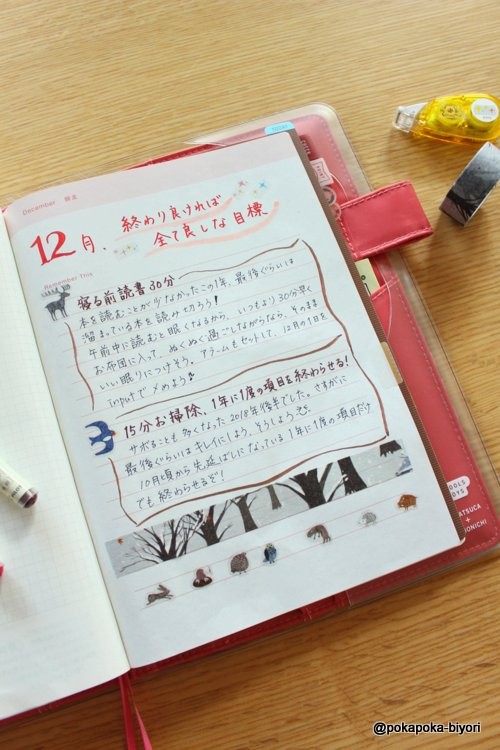 December 師走
12月、終わり良ければ
全て良しな目標
Remember This
寝る前読書30分
本を読むことが少なかったこの1年、最後ぐらいは
溜まっている本を読みきろう!
午前中に読むと眠くなるから、いつもより30分早く
お布団に入って、ぬくぬく過ごしながらなら、そのまま
いい眠りにつけそう。アラームもセットして、12月の1日を
Inputで〆めよう♪
15分お掃除、1年に1度の項目を終わらせる!
サボることも多くなった2018年後半でした。さすがに
最後ぐらいはキレイにしよう、そうしよう
10月頃から先延ばしになっている1年に1度の項目だけ
でも終わらせるぞ!
TOOLS
TOYS
ATSUCA
+
@pokapoka-biyori